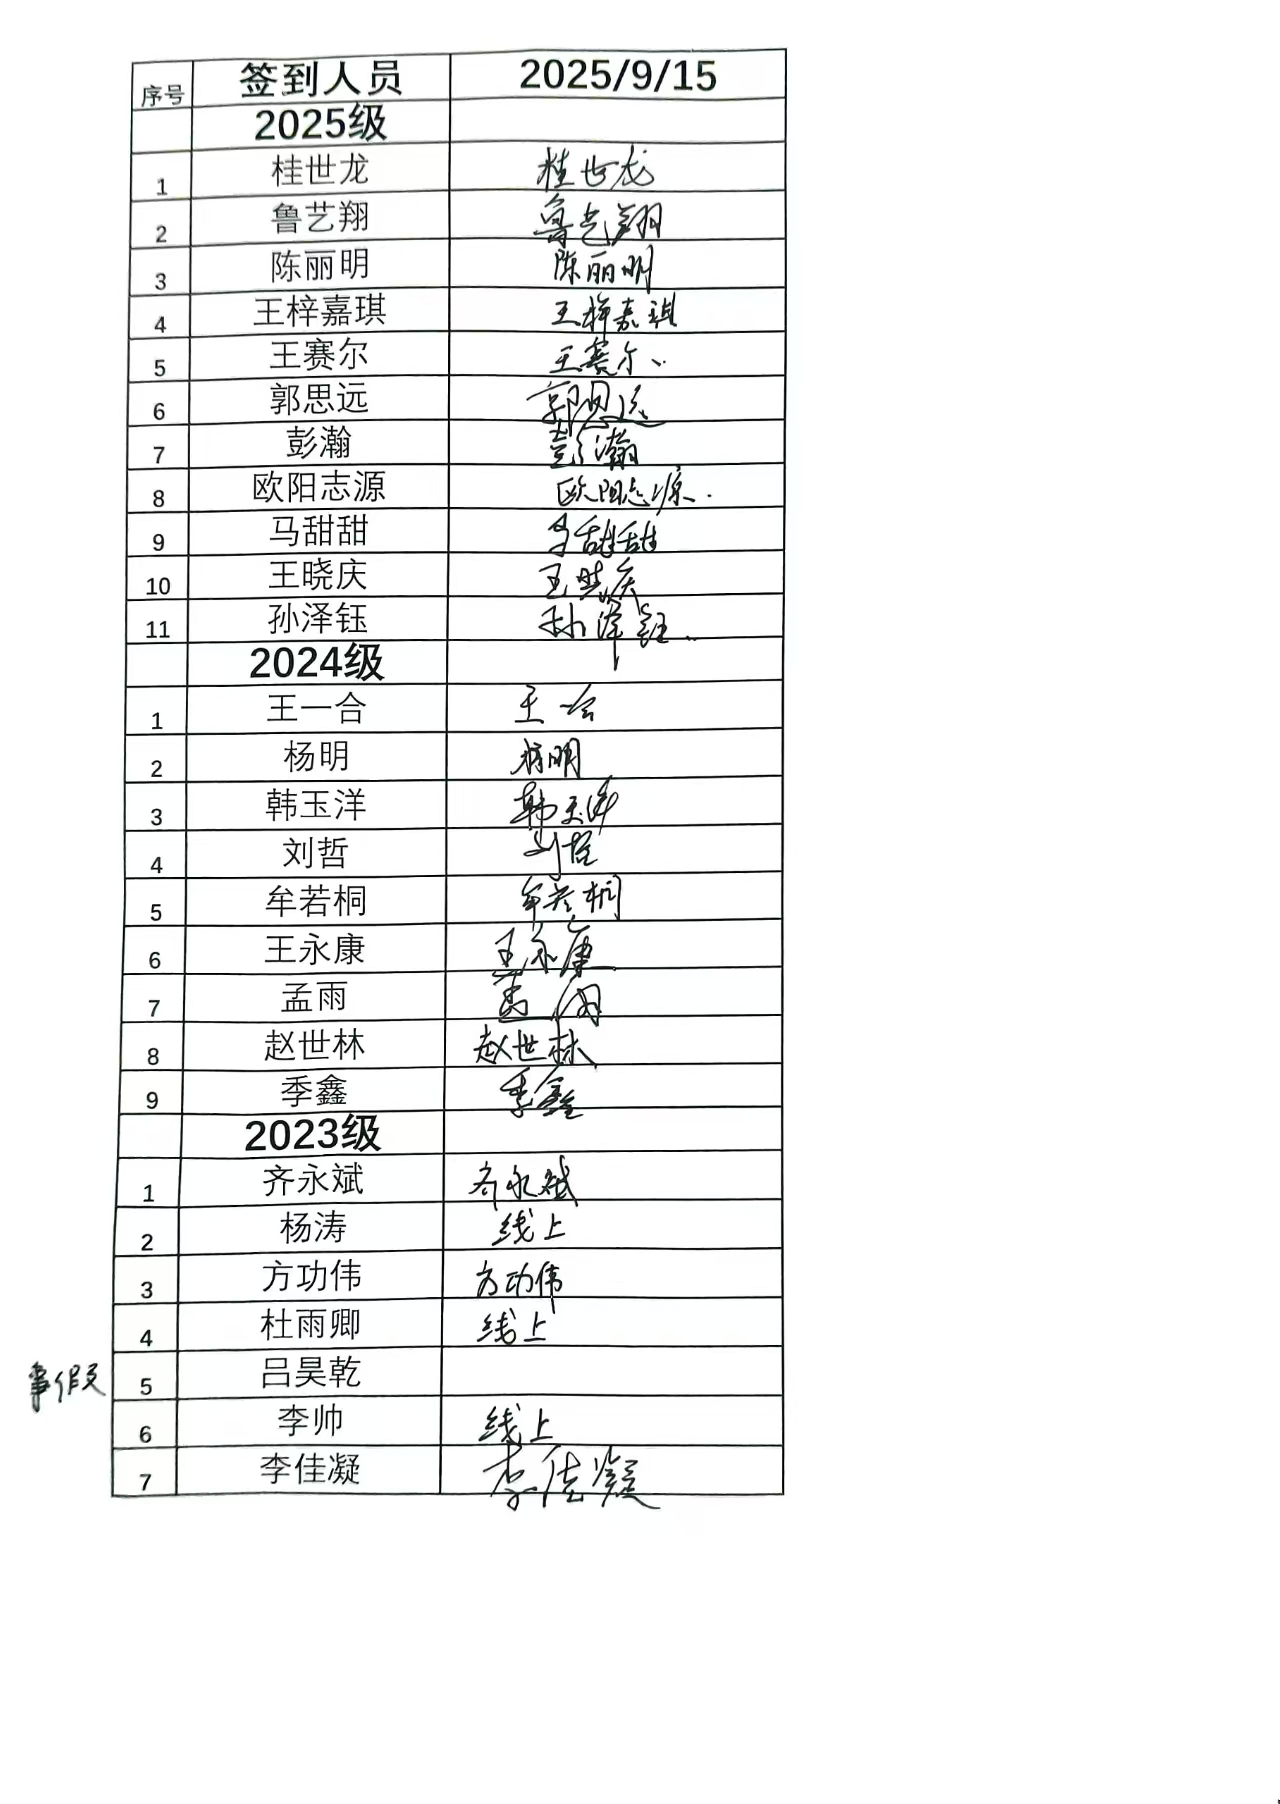 序号 签到人员 2025/9/15
2025级
1 桂世龙 桂世龙
2 鲁艺翔 鲁艺翔
3 陈丽明 陈丽明
4 王梓嘉琪 王梓嘉琪
5 王赛尔 王赛尔
6 郭思远 郭思远
7 彭瀚 彭瀚
8 欧阳志源 欧阳志源.
9 马甜甜 马甜甜
10 王晓庆 王晓庆
11 孙泽钰 孙泽钰
2024级
1 王一合 王一合
2 杨明 杨明
3 韩玉洋 韩玉洋
4 刘哲 刘哲
5 牟若桐 牟若桐
6 王永康 王永康
7 孟雨 孟雨
8 赵世林 赵世林
9 季鑫 季鑫
2023级
1 齐永斌 齐永斌
2 杨涛 线上
3 方功伟 方功伟
4 杜雨卿 线上
事假 5 吕昊乾
6 李帅 线上
7 李佳凝 李佳凝